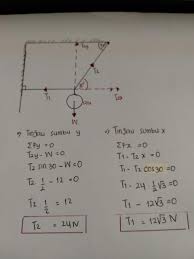 T2y
T2
T1
T2x
W
=> Tinjau sumbu y
ΣFy = 0
T2y - W = 0
T2 sin 30 - W = 0
T2 1/2 - 12 = 0
T2 1/2 = 12
T2 = 24 N
=> Tinjau sumbu x
ΣFx = 0
T1 - T2x = 0
T1 - T2 cos 30 = 0
T1 - 24 1/2 √3 = 0
T1 - 12√3 = 0
T1 = 12√3 N